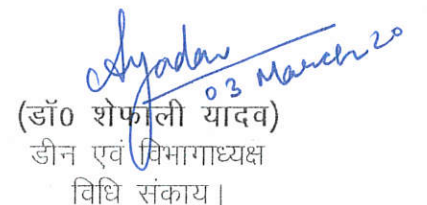 Syadav
03 March 20
(डॉ0 शेफाली यादव)
डीन एवं विभागाध्यक्ष
विधि संकाय।